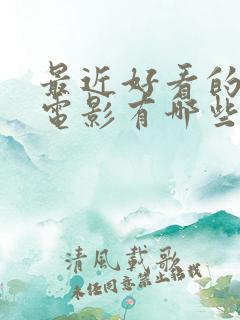 最近好看的
電影有哪些
清風載歌
未经同意禁止转载